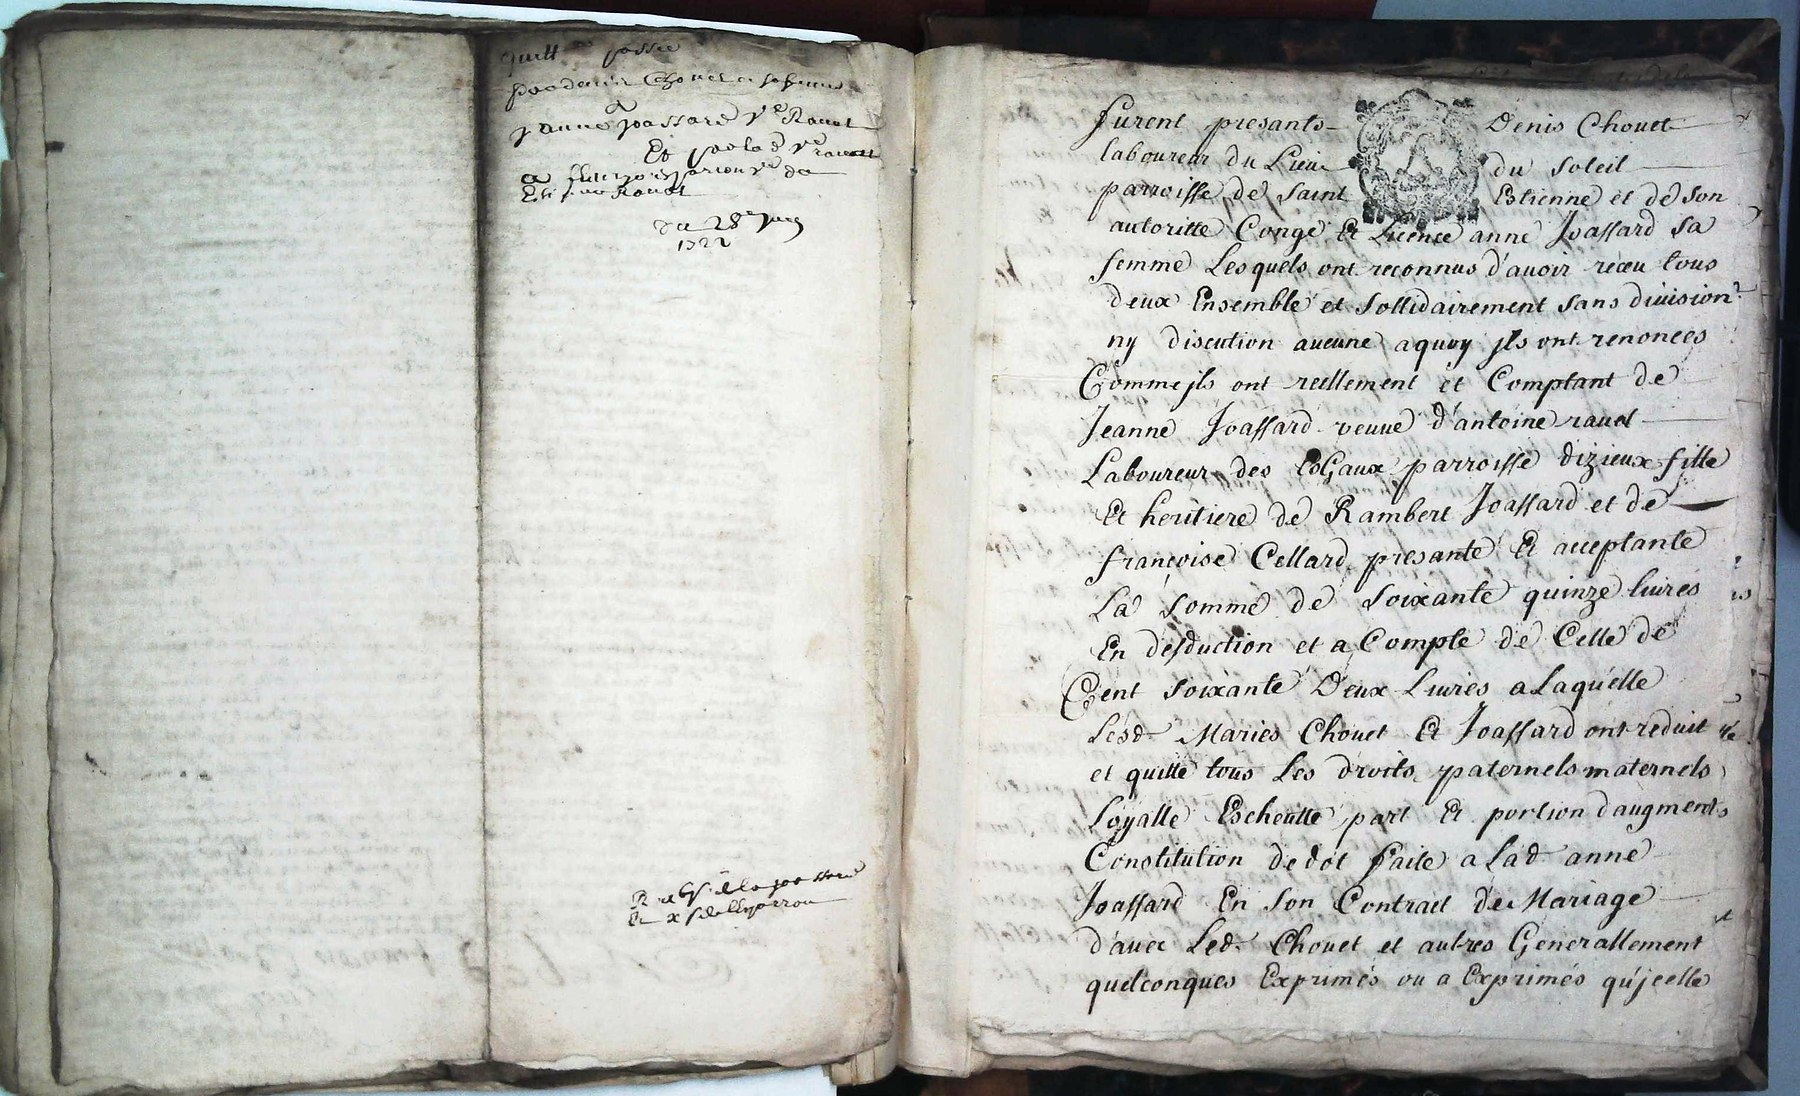 quitt passée
par denis Chouet et sa femme
a Jeanne Joassard v.e Rauet
Et par lad v.e rauet
a
du 28.e
1722
furent presants Denis Chouet
laboureur du Lieu du Soleil
parroisse de Saint Estienne et de son
autoritte Congé Et Licence anne Joassard sa
femme Lesquels ont reconnus d'auoir receu tous
deux Ensemble et sollidairement sans diuision
ny discution aucune a quoy jls ont renonces
Comme jls ont reellement et Comptant de
Jeanne Joassard veuue d'antoine rauel
Laboureur des parroisse dizieux fille
Et heritiere de Rambert Joassard et de
francoise Cellard presante Et acceptante
La somme de soixante quinze liures
En desduction et a Compte de Celle de
Cent soixante Deux Liures a Laquelle
Lesd. Mariés Chouet Et Joassard ont reduit
et quitté tous Les droits paternels maternels
Loyalle Escheutte part Et portion daugments
Constitution de dot faite a Lad. anne
Joassard En son Contract de Mariage
d'auec Led. Chouet et autres Generallement
quelconques Exprimés ou a Exprimés qu'jcelle